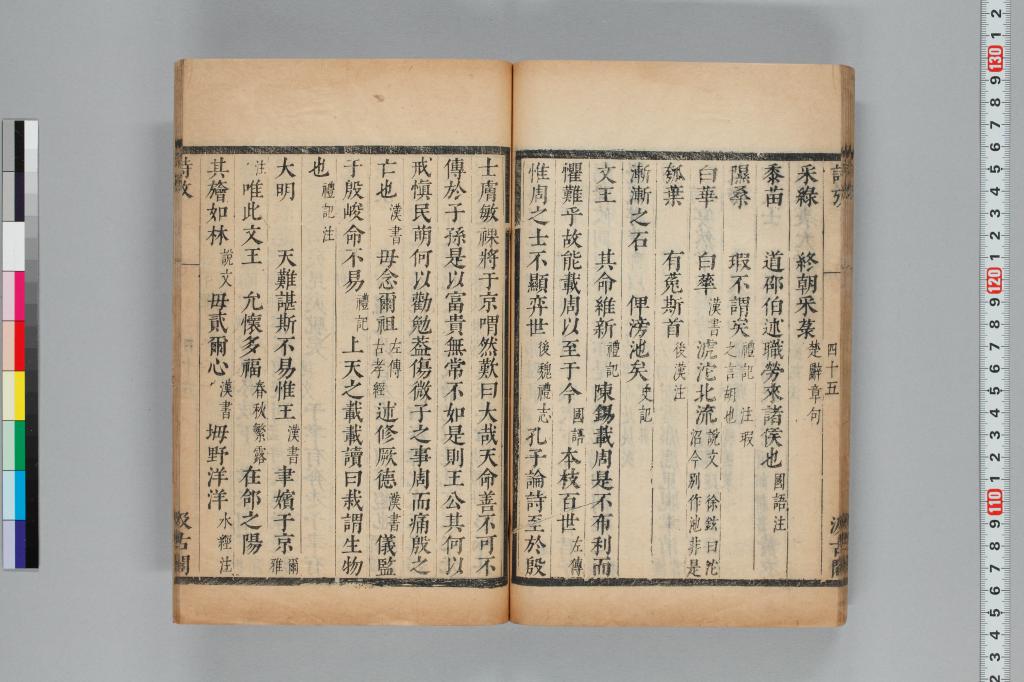 采綠　終朝采菉 楚辭章句
黍苗　道邵伯述職勞來諸侯也 國語注
隰桑　瑕不謂矣 禮記 注瑕之言胡也
白華　白蕐 漢書 滮沱北流 說文 徐鉉曰沱沼今別作池非是
瓠葉　有菟斯首 後漢注
漸漸之石　俾滂池矣 史記
文王　其命維新 禮記 陳錫載周是不布利而
懼難乎故能載周以至于今 國語 本枝百世 左傳
惟周之士不顯弈世 後魏禮志 孔子論詩至於殷
士膚敏祼將于京喟然歎曰大哉天命善不可不
傳於子孫是以富貴無常不如是則王公其何以
戒愼民萌何以勸勉葢傷微子之事周而痛殷之
亡也 漢書 毋念爾祖 左傳 古孝經 述修厥德 漢書 儀監
于殷峻命不易 禮記 上天之載載讀曰栽謂生物
也 禮記注
大明　天難諶斯不易惟王 漢書 聿嬪于京 爾雅
注 唯此文王 允懷多福 春秋繁露 在郃之陽
其旝如林 說文 毋貳爾心 漢書 坶野洋洋 水經注
詩攷
汲古閣
四十五
130
120
110